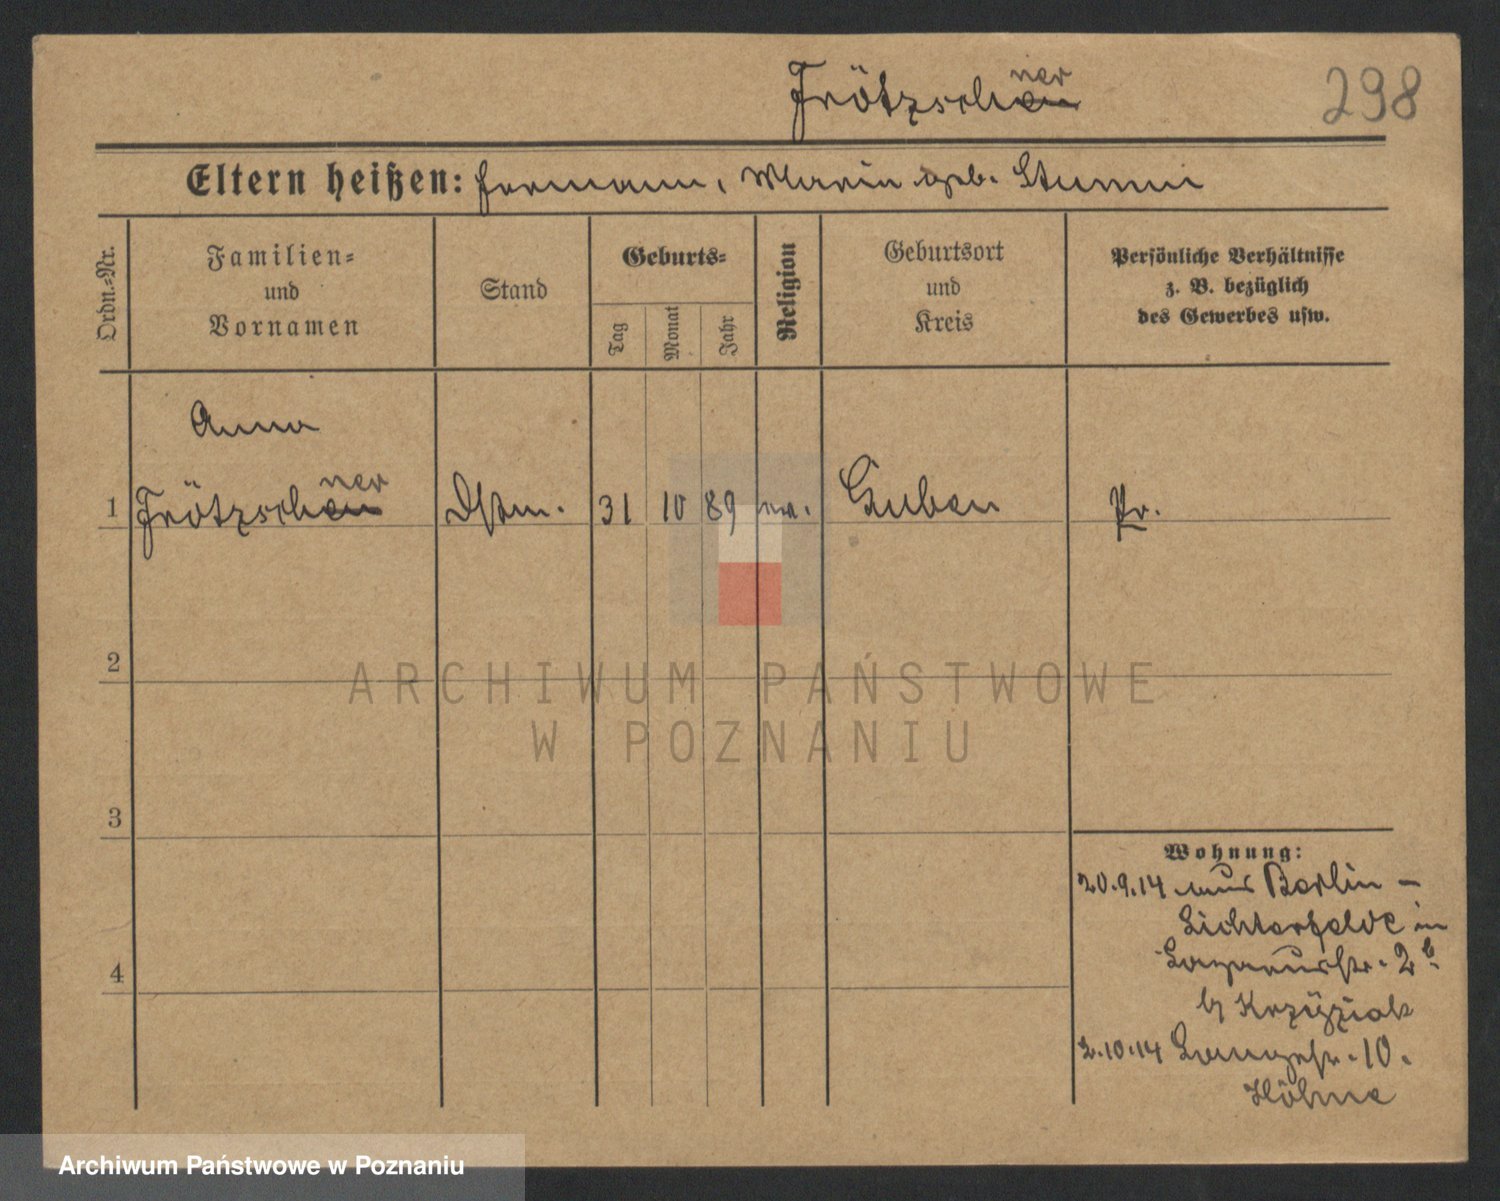 ner
Frötzschen
298
Eltern heißen: Hermann, Maria geb. Stumm
Ordn.-Nr.
Familien-
und
Vornamen
Stand
Geburts-
Tag
Monat
Jahr
Religion
Geburtsort
und
Kreis
Persönliche Verhältnisse
z. B. bezüglich
des Gewerbes usw.
Anna
ner
1 Frötzschen 31 10 89 ev. Guben Pr.
2
3
4
ARCHIWUM PAŃSTWOWE
W POZNANIU
Wohnung:
20.9.14 aus Berlin -
Lichterfelde in
Lazarusstr. 2b
b/ Krzyziak
2.10.14 Langestr. 10.
Höhne
Archiwum Państwowe w Poznaniu